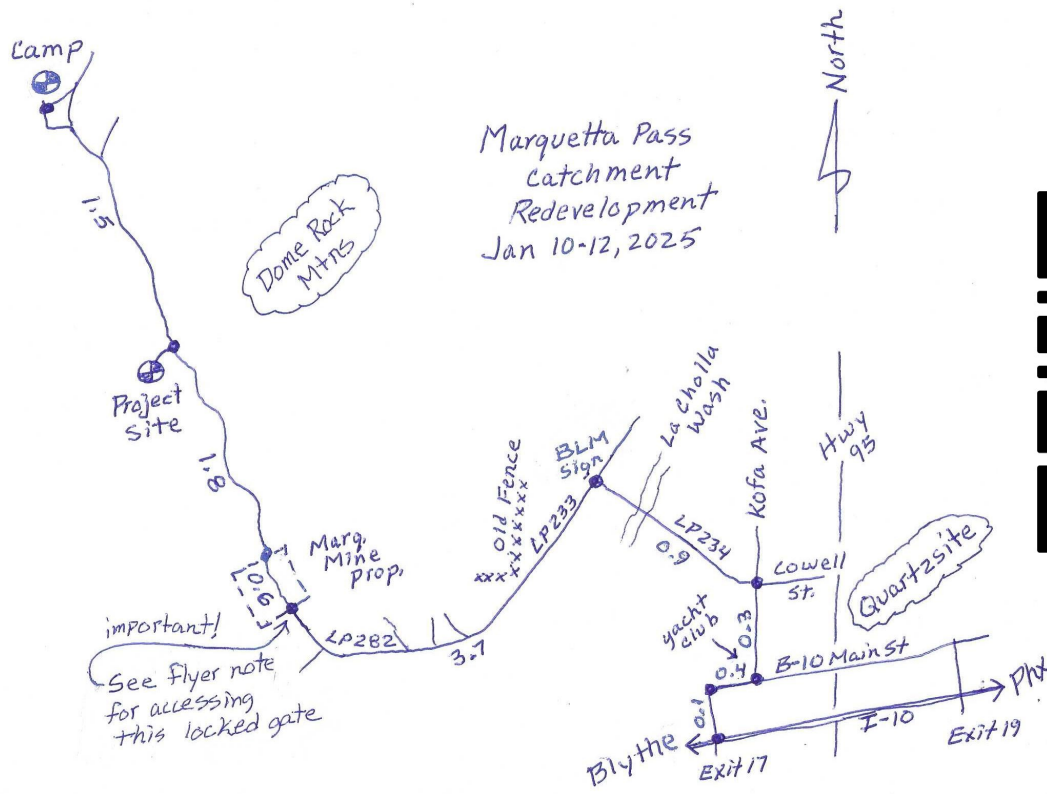 Camp
North
Marquetta Pass
Catchment
Redevelopment
Jan 10-12, 2025
1.5
Dome Rock
Mtns
Project
Site
1.8
Marq.
Mine
prop.
0.6
important!
See flyer note
for accessing
this locked gate
LP282
3.7
Old Fence
xxxxxxxxxx
LP233
BLM
Sign
La Cholla
Wash
LP234
0.9
Kofa Ave.
Hwy
95
Cowell
St.
Quartzsite
yacht
club
0.3
0.4
B-10 Main St
0.1
Phx
I-10
Blythe
Exit 17
Exit 19